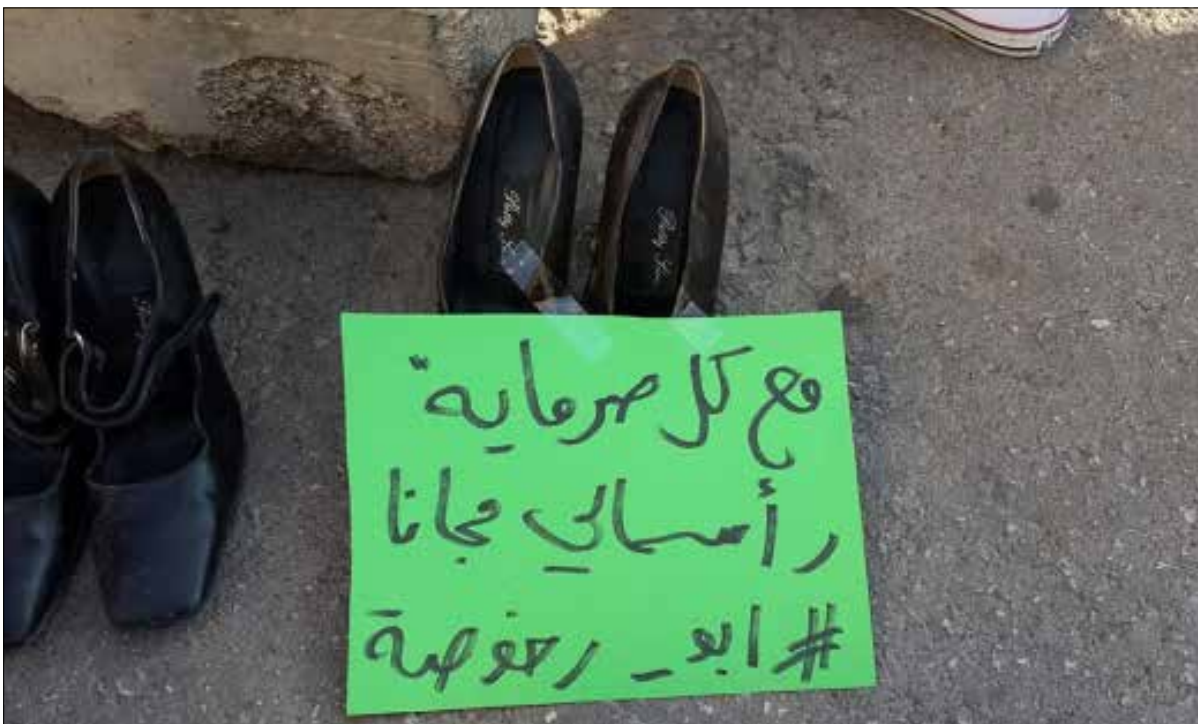 مع كل صرماية"
رأسمالي مجانا
#ابو_رخوصة